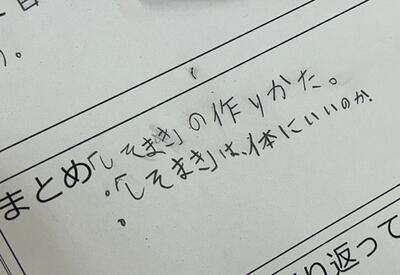 )。
まとめ「しそまき」の作りかた。
・「しそまき」は、体にいいのか。
・
り返って